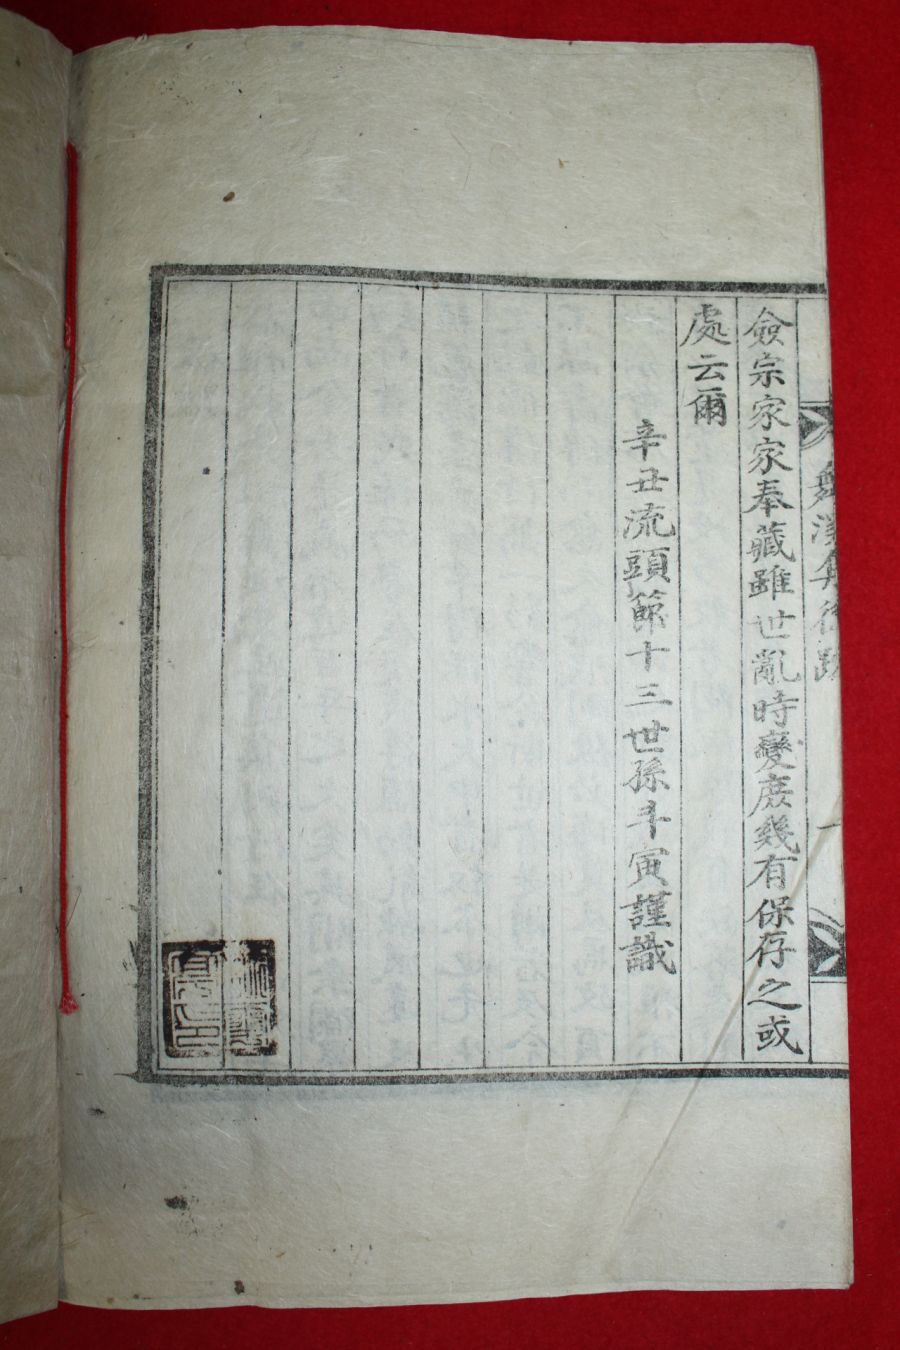 集後跋
一
僉宗家家奉藏雖世亂時變庶幾有保存之或
處云爾
辛丑流頭節十三世孫斗寅謹識